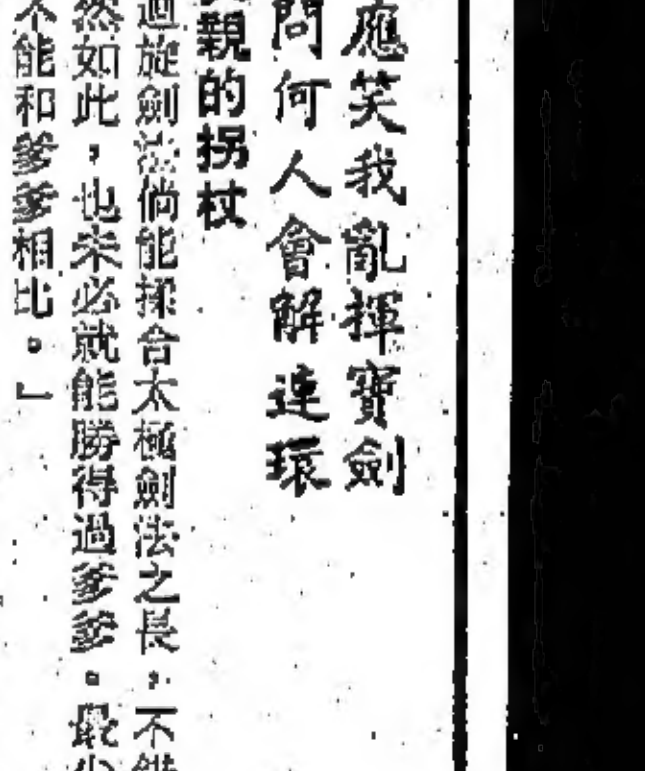 應笑我亂揮寶劍
問何人會解連環
親的拐杖
迴旋劍法倘能揉合太極劍法之長，不錯
然如此，也未必就能勝得過爹爹。最少
不能和爹爹相比。」